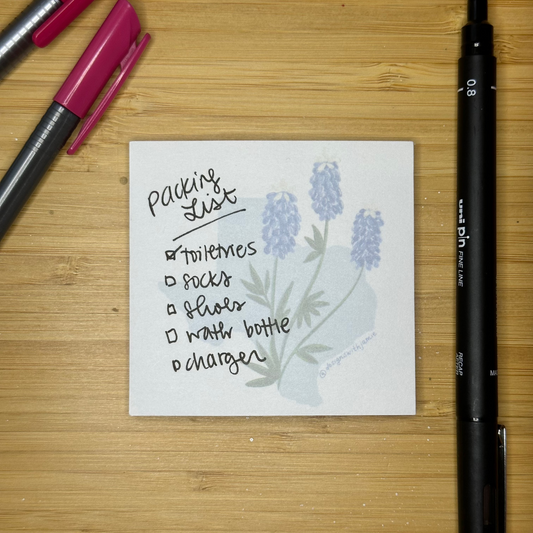 Packing
List
toiletries
socks
shoes
water bottle
charger
0.8
uni pin
FINE LINE